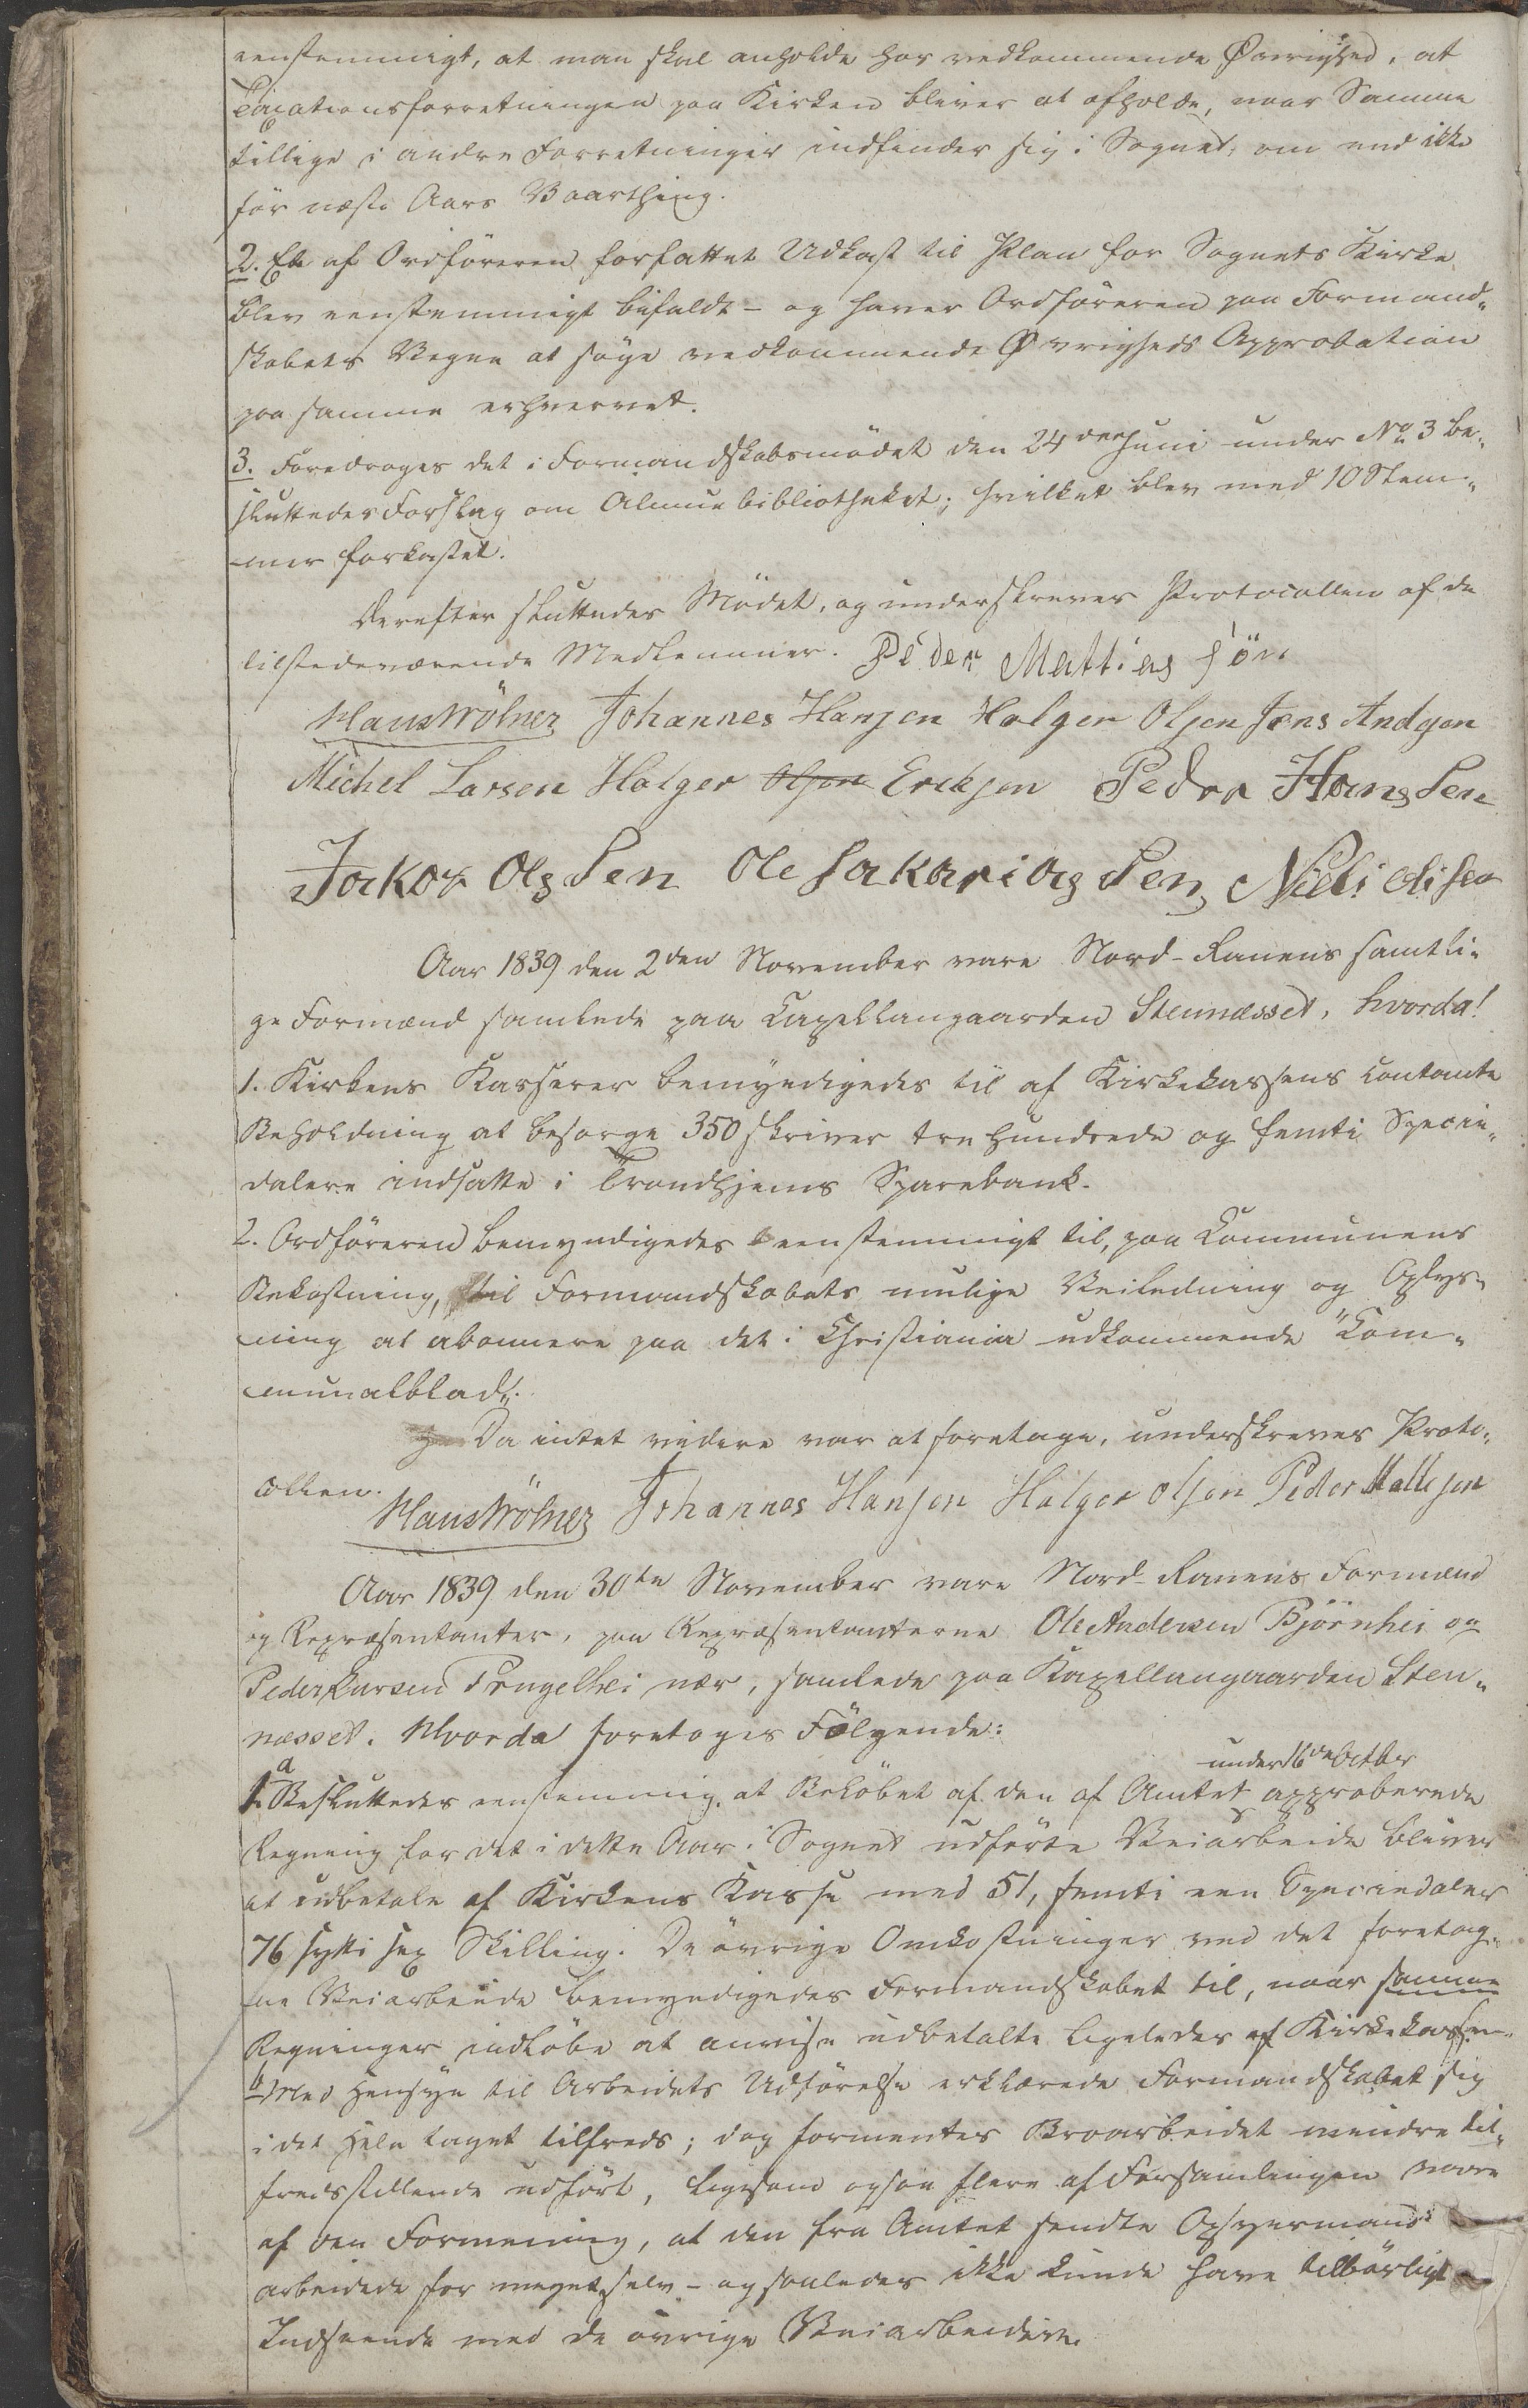 eenstemmigt, at man skal anholde hos vedkommende Øvrighed, at
Taxationsforretningen paa Kirken bliver at afholde, naar Samme
tillige i andre Forretninger indfinder sig i Sognet, om end ikke
før næste Aars Vaarthing.
2. Et af Ordføreren forfattet Udkast til Plan for Sognets Kirke
blev eenstemmigt bifaldt – og haver Ordføreren paa Formand-
skabets Vegne at søge vedkommende Øvrigheds Approbation
paa samme erhvervet.
3. Foredroges det i Formandskabsmødet den 24de Juni under No 3 be-
sluttedes Forslag om Almuebibliotheket; hvilket blev med 10 Stem-
mer forkastet.
Derefter sluttedes Mødet, og underskreves Protocollen af de
tilstedeværende Medlemmer. Peder Mattias søn
Hans Wölner Johannes Hansen Holger Olsen Jens Andsen
Michel Larsen Holger Olsen Ericksen Pedra Hans Sen
Jakob Ols Sen Ole Sakarias Sen Niels Olsen
Aar 1839 den 2den November vare Nord-Ranens samtli-
ge Formænd samlede paa Capellangaarden Stennæsset, hvorda!
1. Kirkens Kasserer bemyndigedes til af Kirkekassens contante
Beholdning at besørge 350 skriver trehundrede og femti Specie-
dalere indsatte i Trondhjems Sparebank.
2. Ordføreren bemyndigedes eenstemmigt til, paa Communens
Bekostning, til Formandskabets mulige Veiledning og Oplys-
ning at abonnere paa det i Christiania udkommende "Com-
munalblad".
Da intet videre var at foretage, underskreves Proto-
collen.
Hans Wölner Johannes Hansen Holger Olsen Peder Mattisen
Aar 1839 den 30te November vare Nord-Ranens Formænd
og Repræsentanter, paa Repræsentanterne Ole Andersen Bjørnhei og
Peder Larsen Tengelhei nær, samlede paa Kapellangaarden Sten-
næsset. Hvorda foretoges Følgende:
under 16de Octbr
1. a Besluttedes eenstemmig, at Beløbet af den af Amtet approberede
Regning for det i dette Aar i Sognet udførte Veiarbeide bliver
at udbetale af Kirkens Kasse med 51, femti een Speciedaler
76 sytti sex Skilling. De øvrige Omkostninger ved det foretag-
ne Veiarbeide bemyndigedes Formandskabet til, naar samme
Regninger indløbe at anvise udbetalte ligeledes af Kirkekassen.
b) Med Hensyn til Arbeidets Udførelse erklærede Formandskabet sig
i det Hele taget tilfreds; dog formentes Broarbeidet mindre til-
fredsstillende udført, ligesom ogsaa flere af Forsamlingen vare
af den Formening, at den fra Amtet sendte Opsynsmand
arbeidede for meget selv – og saaledes ikke kunde have tilbørligt
Indseende med de øvrige Veiarbeidere.